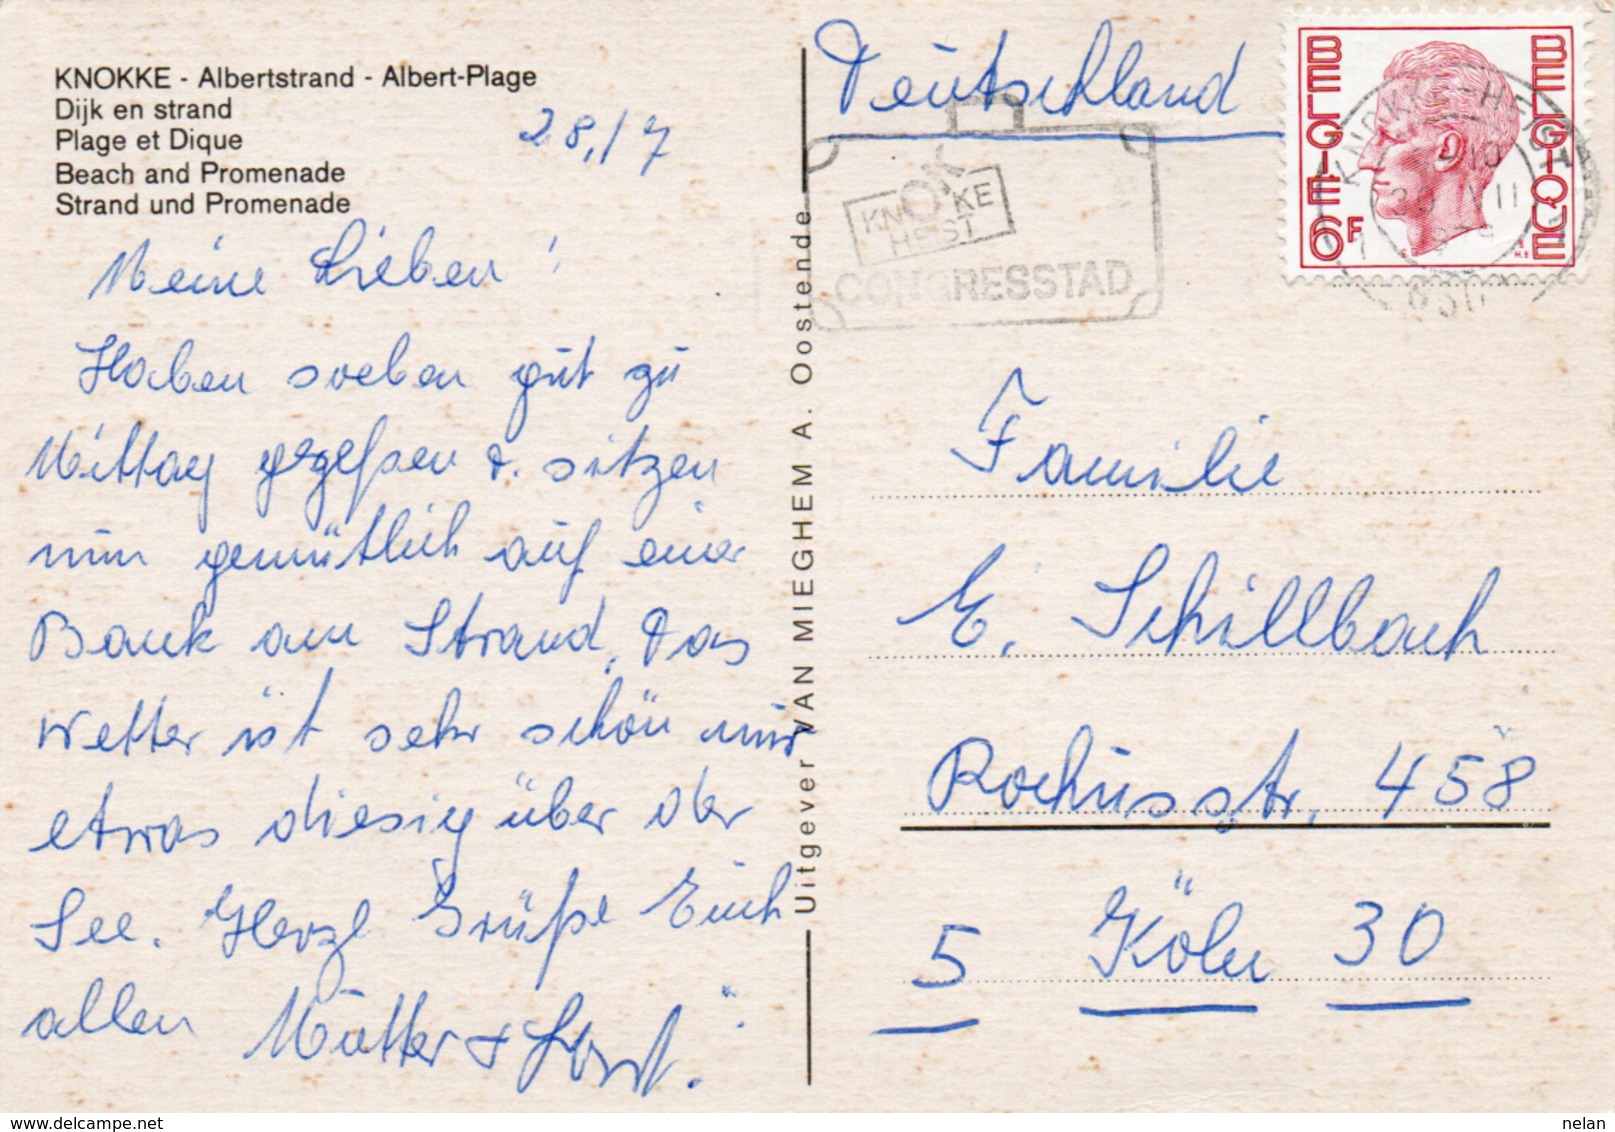 KNOKKE - Albertstrand - Albert-Plage
Dijk en strand
Plage et Dique
Beach and Promenade
Strand und Promenade
28./7
Meine Lieben!
Haben soeben gut zu
Mittag gegeßen u. sitzen
nun gemütlich auf einer
Bank am Strand, das
Wetter ist sehr schön nur
etwas diesig über der
See. Herzl Grüße Euch
allen Mutter + Horst.
Uitgever VAN MIEGHEM A. Oostende
Deutschland
KNOKKE
OK
HEIST
CONGRESSTAD
BELGIE BELGIQUE
6F
KNOKKE-HEIST
VII
Familie
E. Schillbach
Rochusstr. 458
5 Köln 30
delcampe.net
nelan